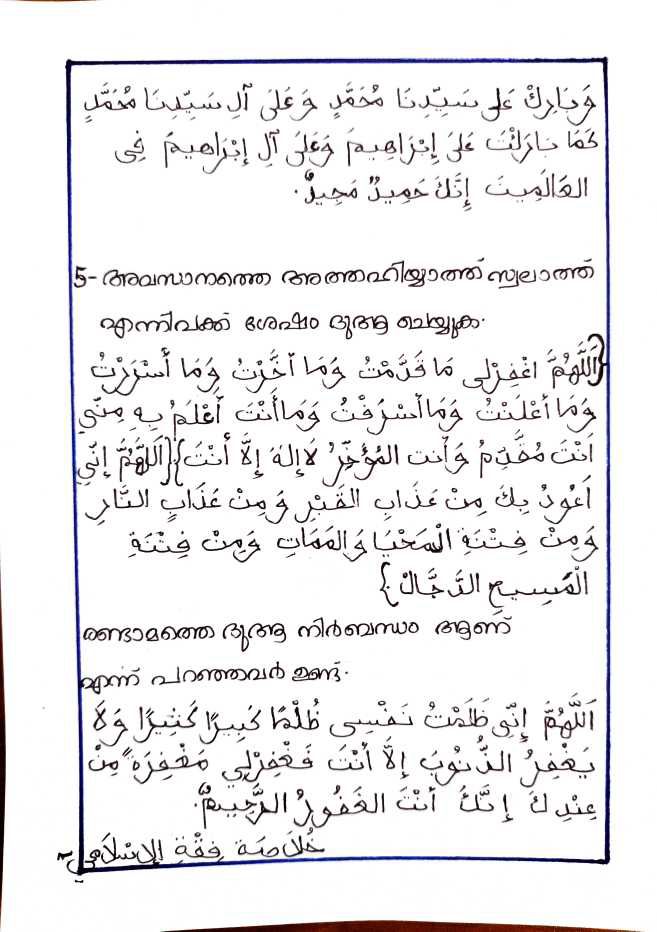 وَبَارِكْ عَلَى سَيِّدِنَا مُحَمَّدٍ وَعَلَى آلِ سَيِّدِنَا مُحَمَّدٍ
كَمَا بَارَكْتَ عَلَى إِبْرَاهِيمَ وَعَلَى آلِ إِبْرَاهِيمَ فِي
العَالَمِينَ إِنَّكَ حَمِيدٌ مَجِيدٌ.
5- അവസാനത്തെ അത്തഹിയ്യാത്ത് സ്വലാത്ത്
എന്നിവക്ക് ശേഷം ദുആ ചെയ്യുക.
{اَللَّهُمَّ اغْفِرْلِي مَا قَدَّمْتُ وَمَا أَخَّرْتُ وَمَا أَسْرَرْتُ
وَمَا أَعْلَنْتُ وَمَا أَسْرَفْتُ وَمَا أَنْتَ أَعْلَمُ بِهِ مِنِّي
اَنْتَ مُقَدِّمُ وَأَنت المُؤَخِّرُ لَا إِلهَ إِلَّا أَنْتَ}{اَللَّهُمَّ إِنِّي
اَعُوذُ بِكَ مِنْ عَذَابِ القَبْرِ وَمِنْ عَذَابٍ النَّارِ
وَمِنْ فِتْنَةِ الْمَحْيَا وَالمَمَاتِ وَمِنْ فِتْنَةِ
الْمَسِيحِ الدَّجَّالْ}
രണ്ടാമത്തെ ദുആ നിർബന്ധം ആണ്
എന്ന് പറഞ്ഞവർ ഉണ്ട്.
اَللَّهُمَّ إِنِّي ظَلَمْتُ نَفْسِي ظُلْمًا كَبِيرًا كَثِيرًا وَلَا
يَغْفِرُ الذُّنُوبَ إِلَّا أَنْتَ فَغْفِرْلِي مَغْفِرَةً مِنْ
عِنْدِكَ إِنَّكَ أَنْتَ الغَفُورُ الرَّحِيمُ.
خُلَاصَة فِقْهِ الإِسْلَامِي